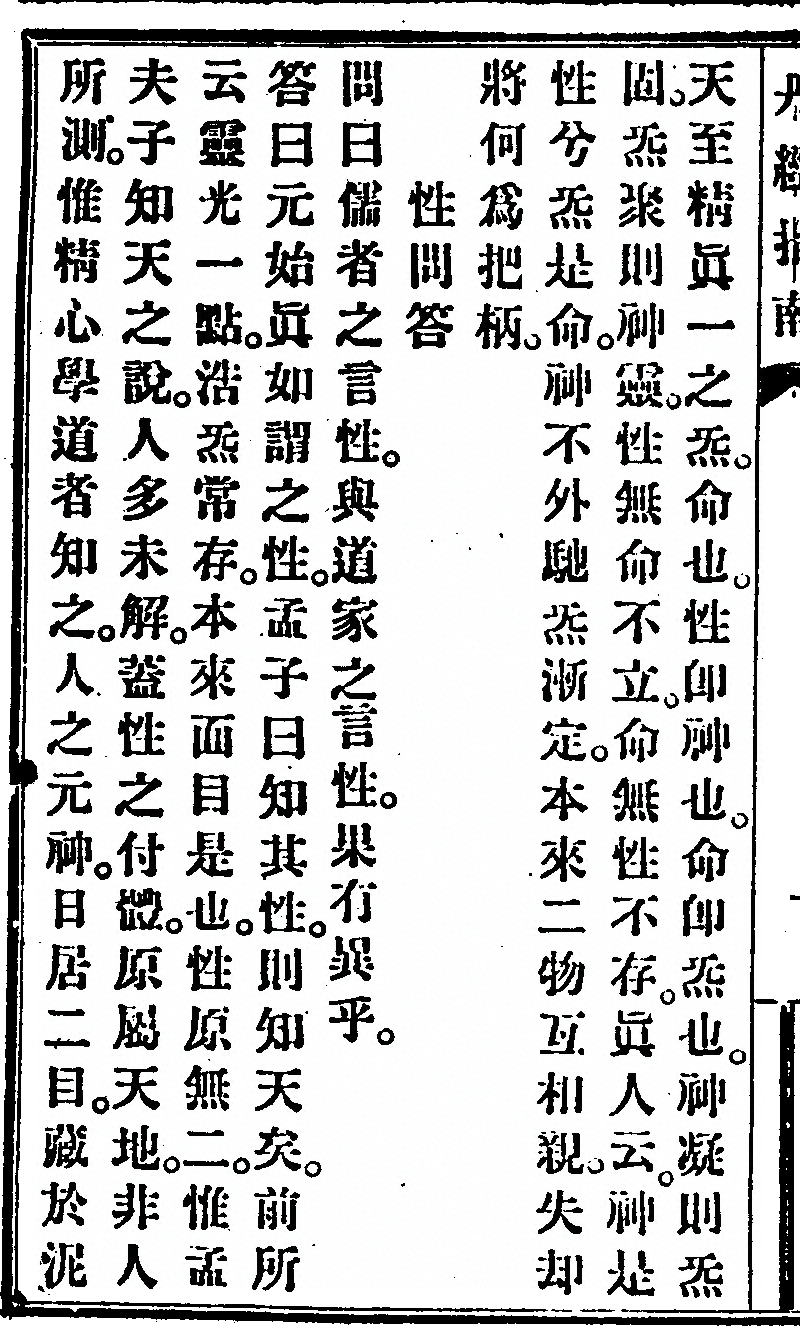 丹經指南
天至精眞一之炁。命也。性卽神也。命卽炁也。神凝則炁
固。炁聚則神靈。性無命不立。命無性不存。眞人云。神是
性兮炁是命。神不外馳炁漸定。本來二物互相親。失却
將何爲把柄。
性問答
問曰儒者之言性。與道家之言性。果有異乎。
答曰元始眞如謂之性。孟子曰知其性。則知天矣。前所
云靈光一點。浩炁常存。本來面目是也。性原無二。惟孟
夫子知天之說。人多未解。蓋性之付體。原屬天地。非人
所測。惟精心學道者知之。人之元神。日居二目。藏於泥